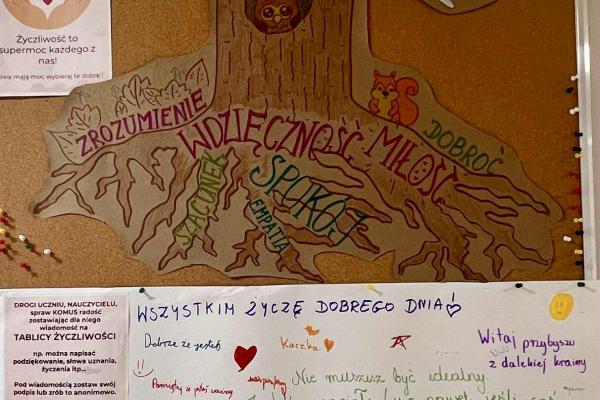 Życzliwość to
supermoc każdego z
nas!
owa mają moc wybieraj te dobre!
ZROZUMIENIE
WDZIĘCZNOŚĆ
MIŁOŚĆ
DOBROĆ
SZACUNEK
SPOKÓJ
EMPATIA
DROGI UCZNIU, NAUCZYCIELU,
spraw KOMUŚ radość
zostawiając dla niego
wiadomość na
TABLICY ŻYCZLIWOŚCI
np. można napisać
podziękowanie, słowa uznania,
życzenia itp...
Pod wiadomością zostaw swój
podpis lub zrób to anonimowo.
WSZYSTKIM ŻYCZĘ DOBREGO DNIA!
Dobrze że jesteś
Kaczka
Witaj przybyszu
z dalekiej krainy
Pamiętaj że jesteś
Nie musisz być idealny